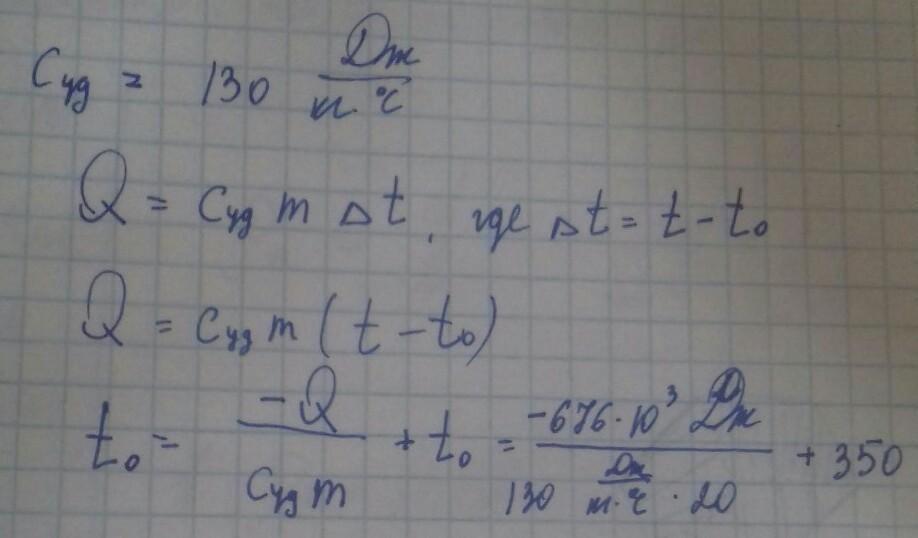 Cуд = 130 Дж/кг·°C
Q = Cуд m Δt, где Δt = t - t₀
Q = Cуд m (t - t₀)
t₀ = -Q/Cуд m + t₀ = -676·10³ Дж/130 Дж/кг·°C · 20 + 350